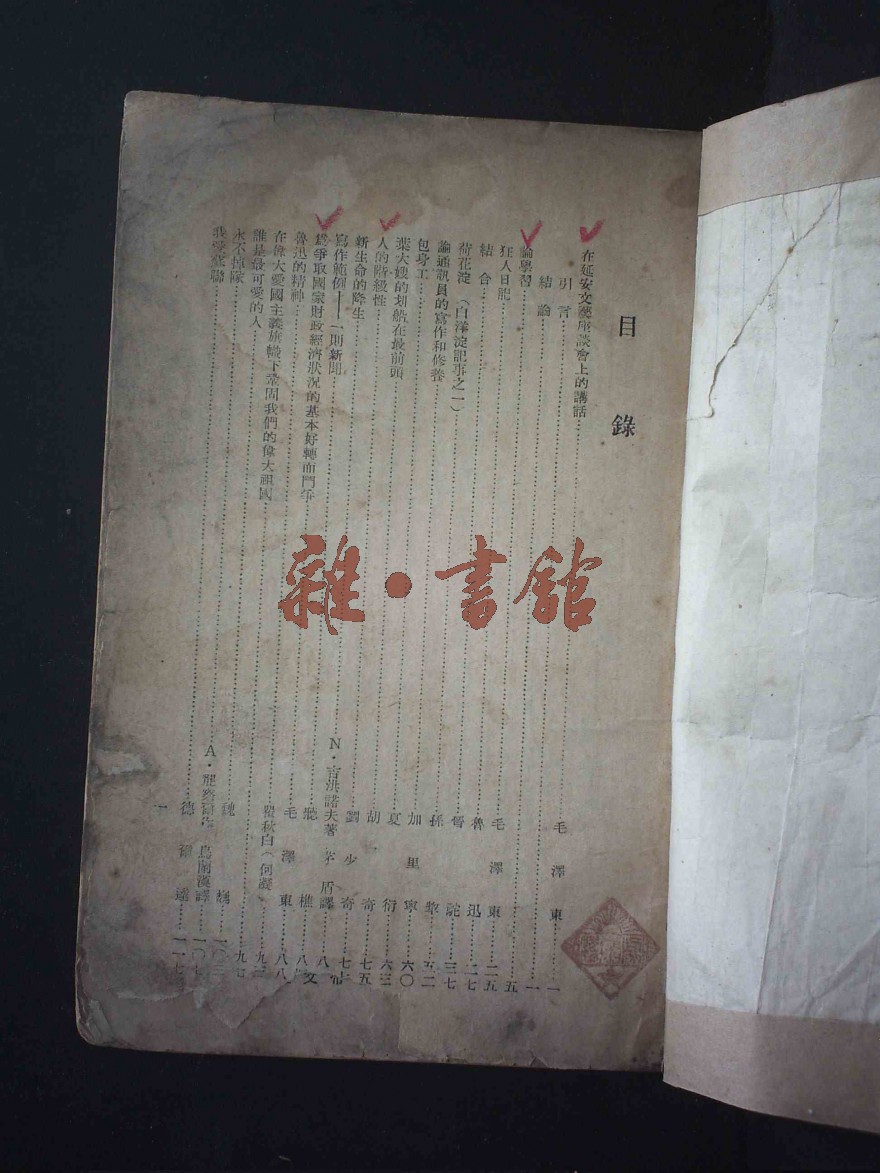 目錄
在延安文藝座談會上的講話……毛澤東……一
引言……一
結論……五
論學習……毛澤東……二五
狂人日記……魯迅……二七
結合……晉駝……三七
荷花淀（白洋淀記事之一）……孫犂……五二
論通訊員的寫作和修養……加里寧……六〇
包身工……夏衍……六三
葉大嫂的划船在最前頭……胡奇……七五
人的階級性……劉少奇……七
新生命的降生……N·吉洪諾夫著 茅盾譯……八
寫作範例——一則新聞……聽樵……八
爲爭取國家財政經濟狀況的基本好轉而鬥爭……毛澤東……八八
魯迅的精神……瞿秋白（何凝）……九
在偉大愛國主義旗幟下鞏固我們的偉大祖國……九七
誰是最可愛的人……魏巍……一
永不掉隊……A· 烏蘭漢譯……一〇七
我愛蘇聯……德……一一七
雜·書館